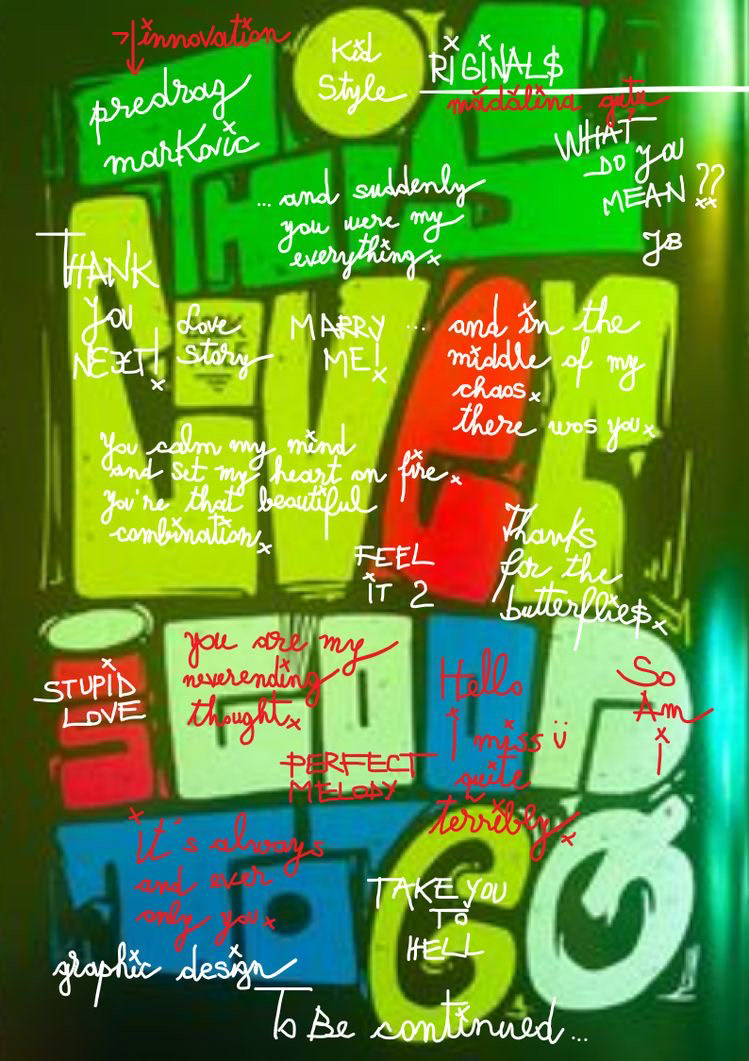 innovation
Kid
Style
RIGINAL$
mădălina guțu
predrag
markovic
WHAT
DO you
MEAN ??
JB
... and suddenly
you were my
everything.
THANK
you
NEXT!
Love
story
MARRY
ME!
... and in the
middle of my
chaos.
there was you.
you calm my mind
and set my heart on fire.
you're that beautiful
combination.
FEEL
IT 2
Thanks
for the
butterflie$.
THIS
LIVER
IS GOOD
TO GO
STUPID
LOVE
you are my
neverending
thought.
PERFECT
MELODY
Hello
I miss ü
quite
terribly.
So
Am
I
It's always
and ever
only you.
TAKE YOU
TO
HELL
graphic design
To Be continued...